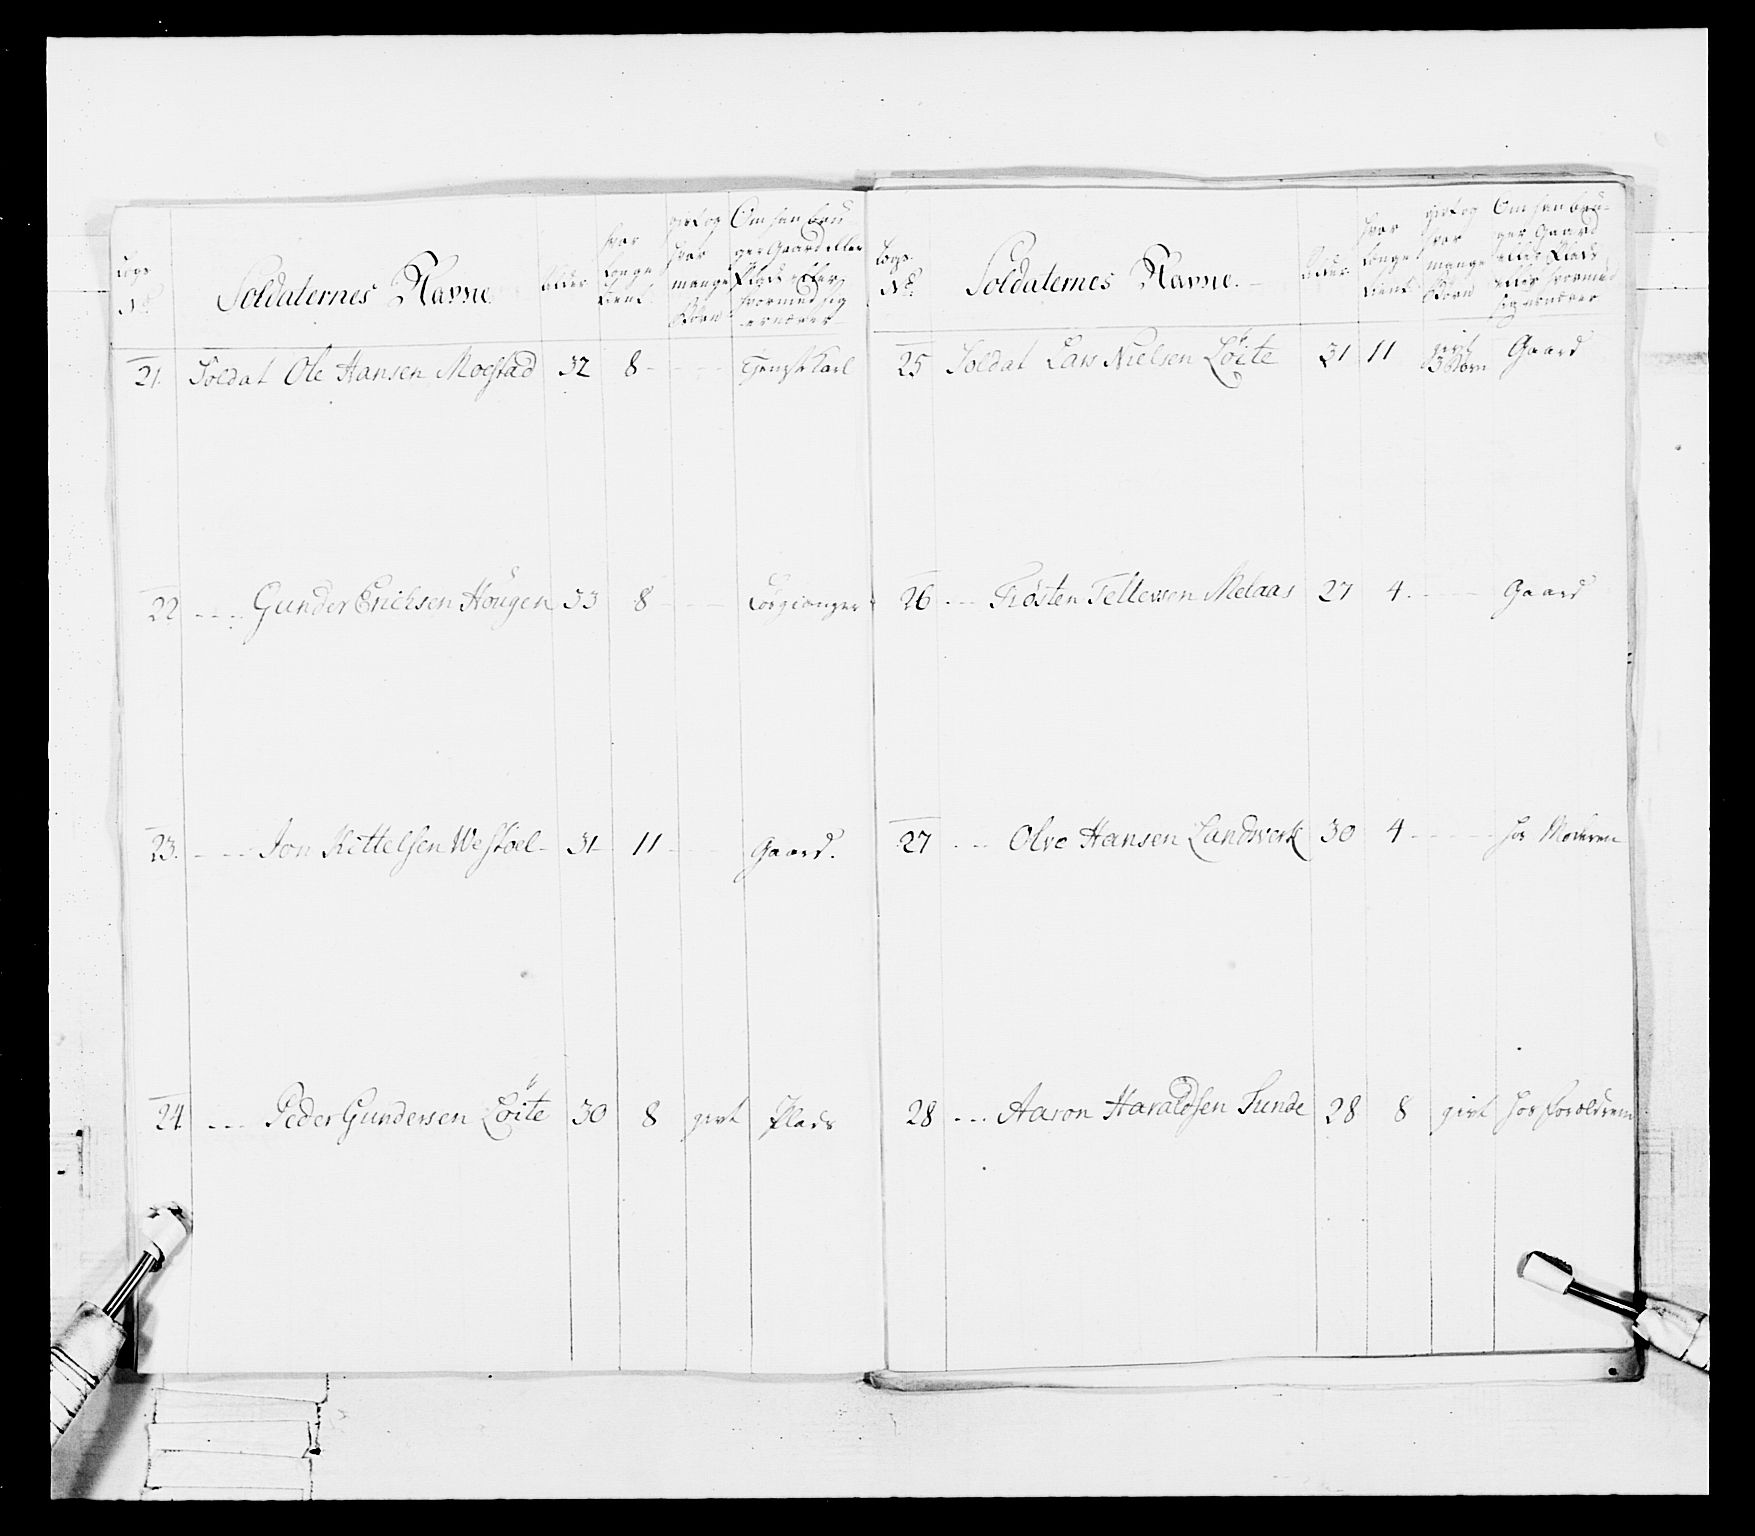 Logs No
Soldaternes Navne
Alder
hvor længe tient
givt og hvor mange Børn
Om han bruger Gaard eller Plads eller hvormed sig ernærer
21. Soldat Ole Hansen Moestad 32 8 - - - - Tienstkarl
22 - - - Gunder Erichsen Hougen 33 8 - - - Losgiænger
23. - - - Jon Kittelsen Westöel - 31 11 - - Gaard.
24 - - - Peder Gundersen Löite 30 8 givt Plads
Logs No.
Soldaternes Navne.
Alder
hvor længe tient
givt og hvor mange Børn
Om han bruger Gaard eller Plads eller hvormed sig ernærer
25 Soldat Lars Nielsen Löite 31 11 givt 3 Børn Gaard
26 - - - Tiösten Tellevsen Melaas 27 4. - - - Gaard
27 - - - Olve Hansen Landverk 30 4 - - - - hos Moderen
28 - - - Aaron Haraldsen Sunde 28 8 givt hos Forældrene